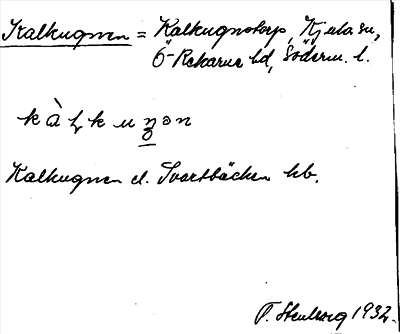 Kalkugnen = Kalkugnstorp, Kjula sn,
Ö-Rekarne hd, Söderm. l.
Kalkugnen el. Svartbäcken hb.
1932.